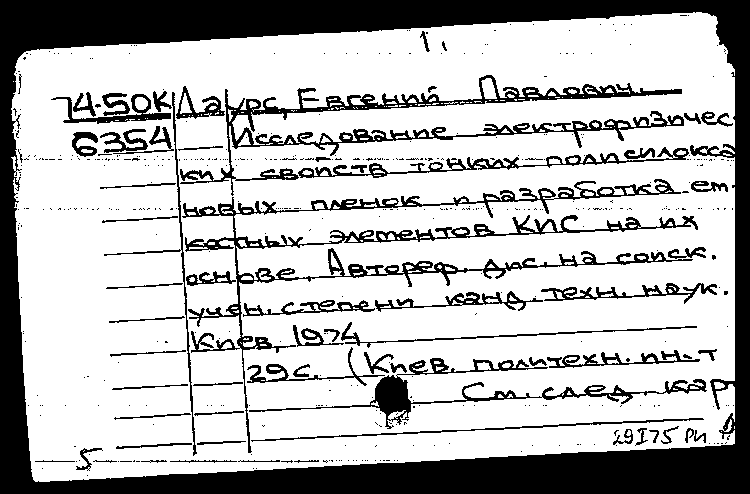 1.
74-50К Даурс, Евгений Павлович.
6354 Исследование электрофизичес-
ких свойств тонких полисилокса
новых пленок и разработка ем-
костных элементов КИС на их
основе. Автореф. дис. на соиск.
учен. степени канд. техн. наук.
Киев, 1974.
29 с. (Киев. политехн. ин-т
См. след. кар
29I75 РИ
5